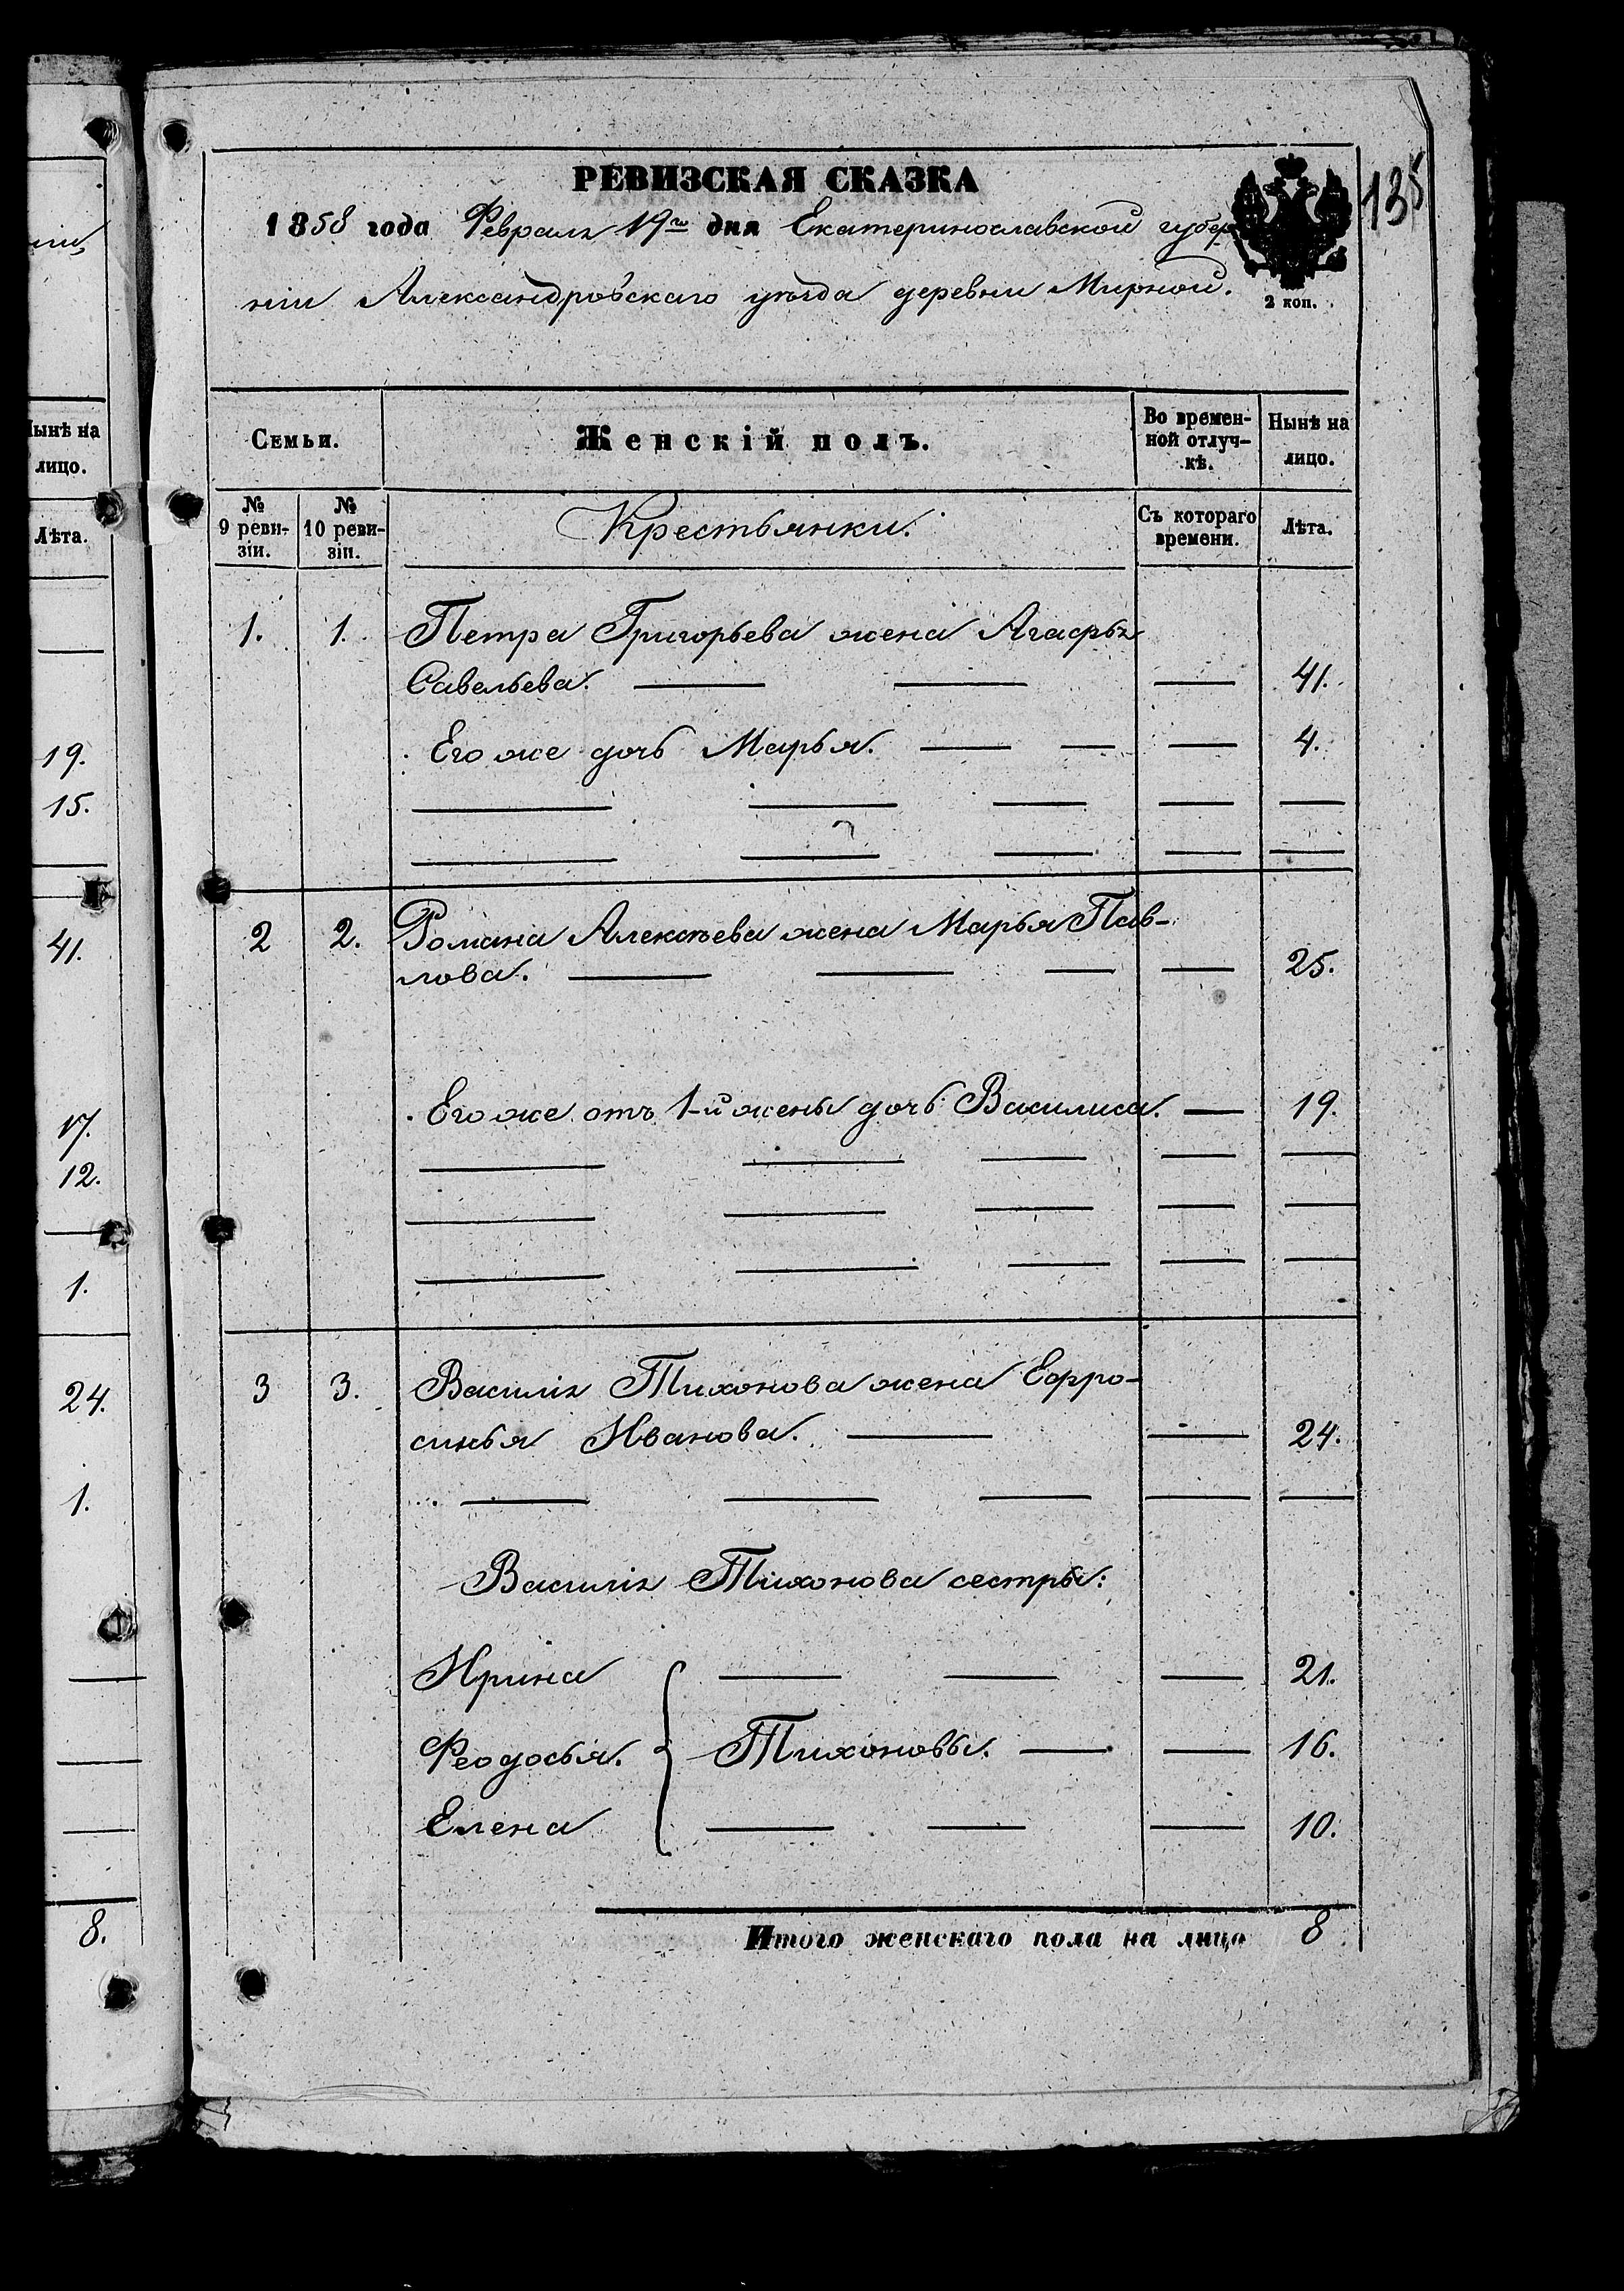 ніи,
Нынѣ на
лицо.
Лѣта.
19.
15.
41.
17.
12.
1.
24.
1.
8.
135
РЕВИЗСКАЯ СКАЗКА
1858 года Февраля 19го дня Екатеринославской губер
ніи Александровскаго уѣзда деревни Мирной.
2 коп.
Семьи.
Женскій полъ.
Во времен-
ной отлуч-
кѣ.
Нынѣ на
лицо.
№
9 реви-
зіи.
№
10 реви-
зіи.
Крестьянки.
Съ котораго
времени.
Лѣта.
1. 1. Петра Григорьева жена Агафья
Савельева. 41.
Его же дочь Марья. 4.
2 2. Романа Алексѣева жена Марья Пав-
лова. 25.
Его же отъ 1-й жены дочь Василиса. 19.
3 3. Василія Тихонова жена Ефро-
синья Иванова. 24.
Василія Тихонова сестры:
Ирина 21.
Феодосья. Тихоновы. 16.
Елена 10.
Итого женскаго пола на лицо 8